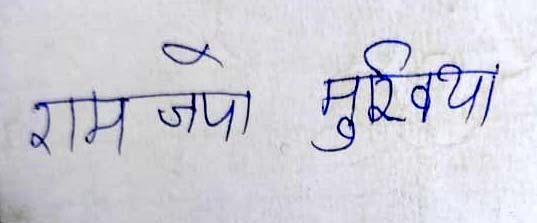 रामजपो मुखिया